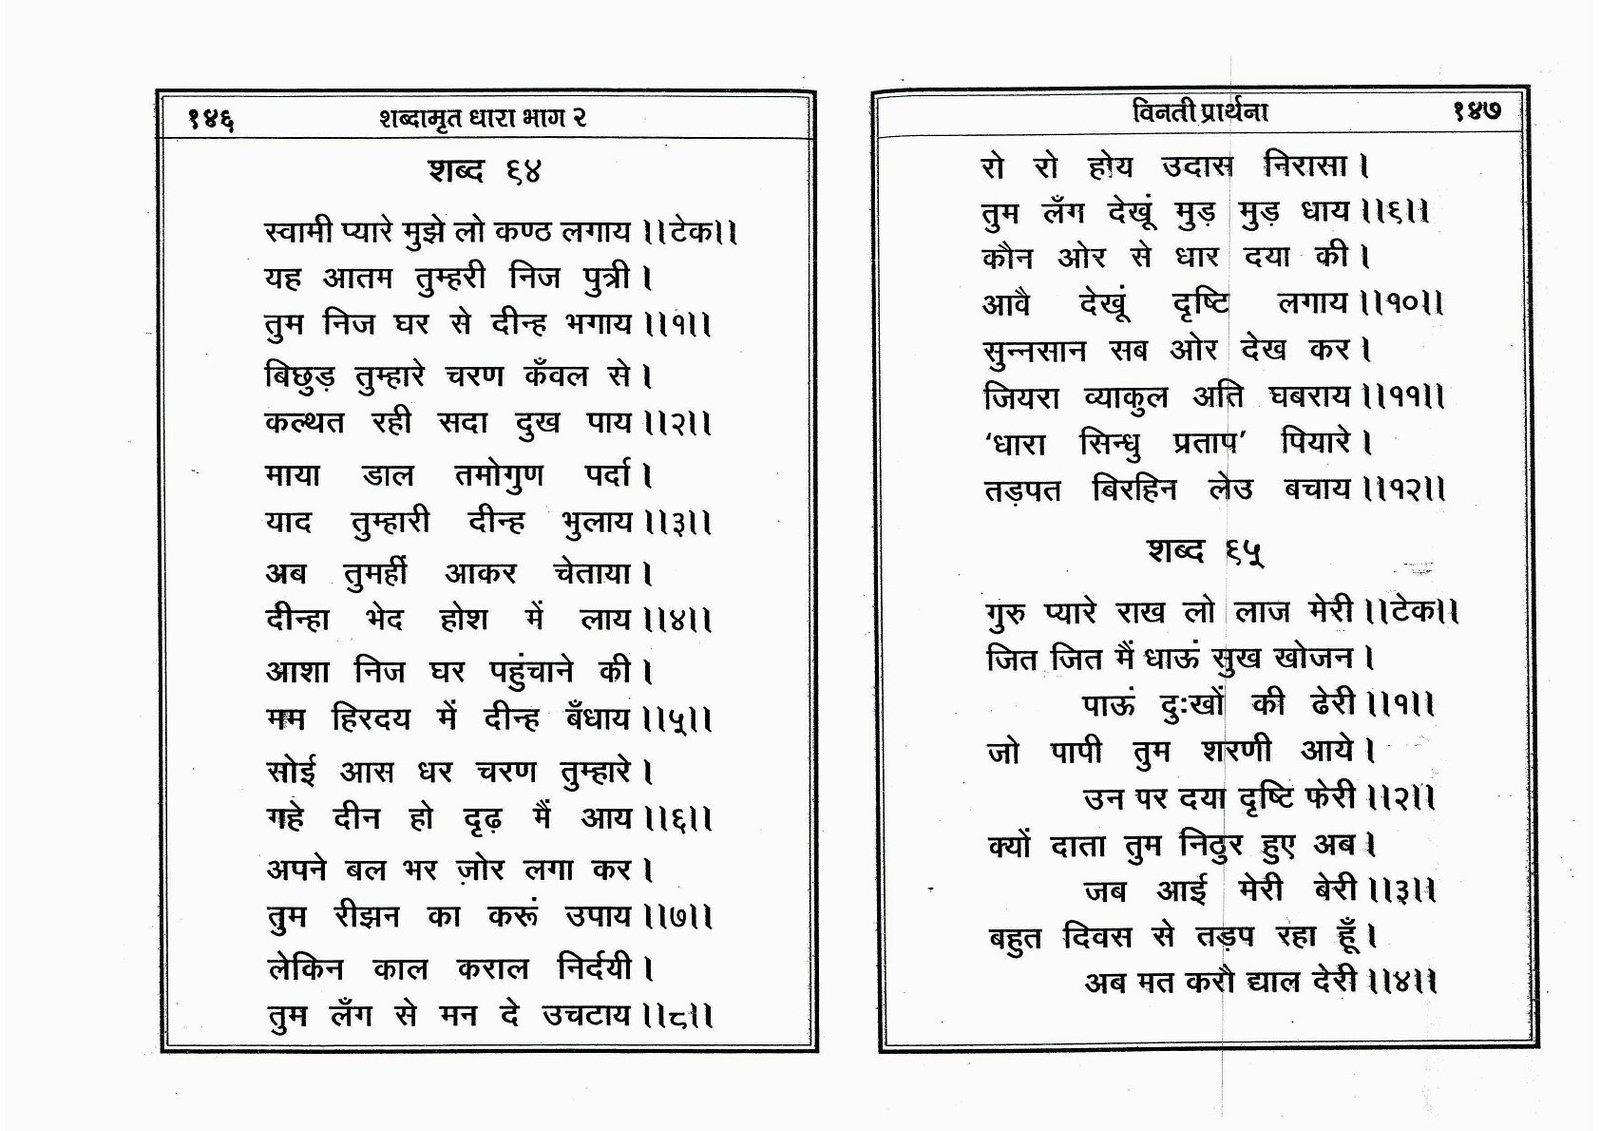 १४६ शब्दामृत धारा भाग २
शब्द ६४
स्वामी प्यारे मुझे लो कण्ठ लगाय ।।टेक।।
यह आतम तुम्हरी निज पुत्री ।
तुम निज घर से दीन्ह भगाय ।।१।।
बिछुड़ तुम्हारे चरण कँवल से ।
कल्थत रही सदा दुख पाय ।।२।।
माया डाल तमोगुण पर्दा ।
याद तुम्हारी दीन्ह भुलाय ।।३।।
अब तुमहीं आकर चेताया ।
दीन्हा भेद होश में लाय ।।४।।
आशा निज घर पहुंचाने की ।
मम हिरदय में दीन्ह बँधाय ।।५।।
सोई आस धर चरण तुम्हारे ।
गहे दीन हो दृढ़ मैं आय ।।६।।
अपने बल भर ज़ोर लगा कर ।
तुम रीझन का करूं उपाय ।।७।।
लेकिन काल कराल निर्दयी ।
तुम लँग से मन दे उचटाय ।।८।।
विनती प्रार्थना १४७
रो रो होय उदास निरासा ।
तुम लँग देखूं मुड़ मुड़ धाय ।।६।।
कौन ओर से धार दया की ।
आवै देखूं दृष्टि लगाय ।।१०।।
सुन्नसान सब ओर देख कर ।
जियरा व्याकुल अति घबराय ।।११।।
‘धारा सिन्धु प्रताप’ पियारे ।
तड़पत बिरहिन लेउ बचाय ।।१२।।
शब्द ६५
गुरु प्यारे राख लो लाज मेरी ।।टेक।।
जित जित मैं धाऊं सुख खोजन ।
पाऊं दुःखों की ढेरी ।।१।।
जो पापी तुम शरणी आये ।
उन पर दया दृष्टि फेरी ।।२।।
क्यों दाता तुम निठुर हुए अब ।
जब आई मेरी बेरी ।।३।।
बहुत दिवस से तड़प रहा हूँ ।
अब मत करौ द्याल देरी ।।४।।